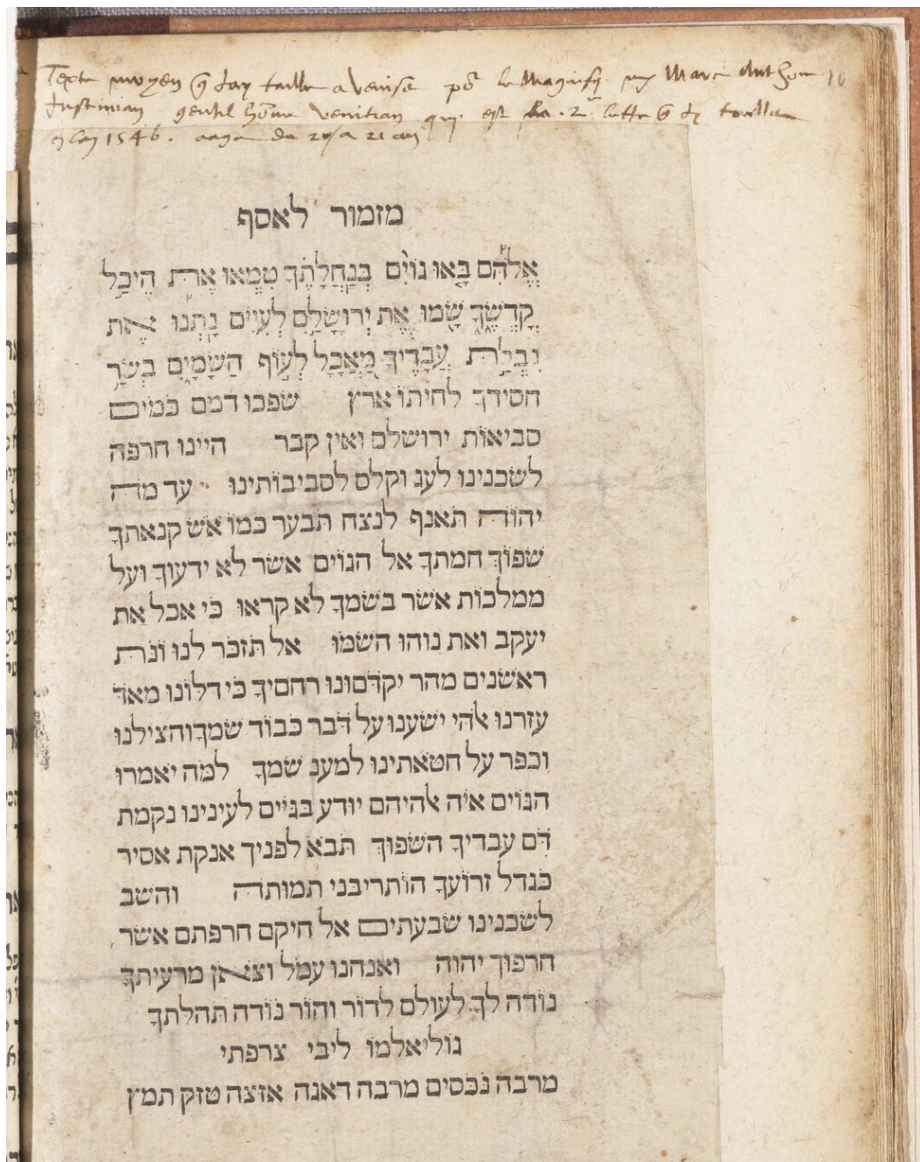 Texte moyen q̃ Jay taille a Venise po᷑ le Magnifiq̃ mẽ Marc Anthoine 10
Justinian gentil hõme venitian qui est la .2ᵉ lettre q̃ Jey taillee
en lan 1546. aage de 20 a 21 an
מזמור לאסף
אֱלֹהִים בָּאוּ גוֹיִם בְּנַחֲלָתֶךָ טִמְּאוּ אֶת הֵיכַל
קָדְשֶׁךָ שָׂמוּ אֶת יְרוּשָׁלַםִ לְעִיִּים נָתְנוּ אֶת
נִבְלַת עֲבָדֶיךָ מַאֲכָל לְעוֹף הַשָּׁמָיִם בְּשַׂר
חסידך לחיתו ארץ שפכו דמם כמים
סביאות ירושלם ואין קבר היינו חרפה
לשכנינו לעג וקלס לסביבותינו עד מה
יהוה תאנף לנצח תבער כמו אש קנאתך
שפוך חמתך אל הגוים אשר לא ידעוך ועל
ממלכות אשר בשמך לא קראו כי אכל את
יעקב ואת נוהו השמו אל תזכר לנו ונת
ראשנים מהר יקדמונו רחמיך כי דלונו מאד
עזרנו ﭏהי ישענו על דבר כבוד שמך והצילנו
וכפר על חטאתינו למענ שמך למה יאמרו
הגוים איה ﭏהיהם יודע בגוים לעינינו נקמת
דם עבדיך השפוך תבא לפניך אנקת אסיר
כגדל זרועך הותר יבני תמותה והשב
לשכנינו שבעתים אל חיקם חרפתם אשר
חרפוך יהוה ואנחנו עמל וצאן מרעיתך
נודה לך לעולם לדור והור נודה תהלתך
גוליאלמו ליבי צרפתי
מרבה נכסים מרבה דאגה אזצה טזק תמץ